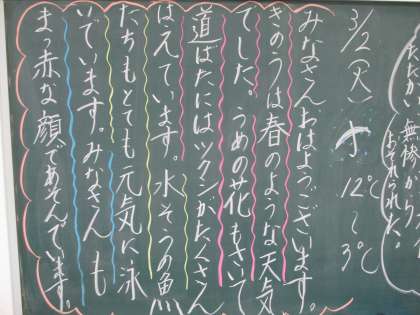 おそれられた。
3/2(火) 12℃ 〜 3℃
みなさんおはようございます。
きのうは春のような天気
でした。うめの花もさいて
道ばたにはツクシがたくさん
はえています。水そうの魚
たちもとても元気に泳
いでいます。みなさんも
まっ赤な顔であそんでいます。